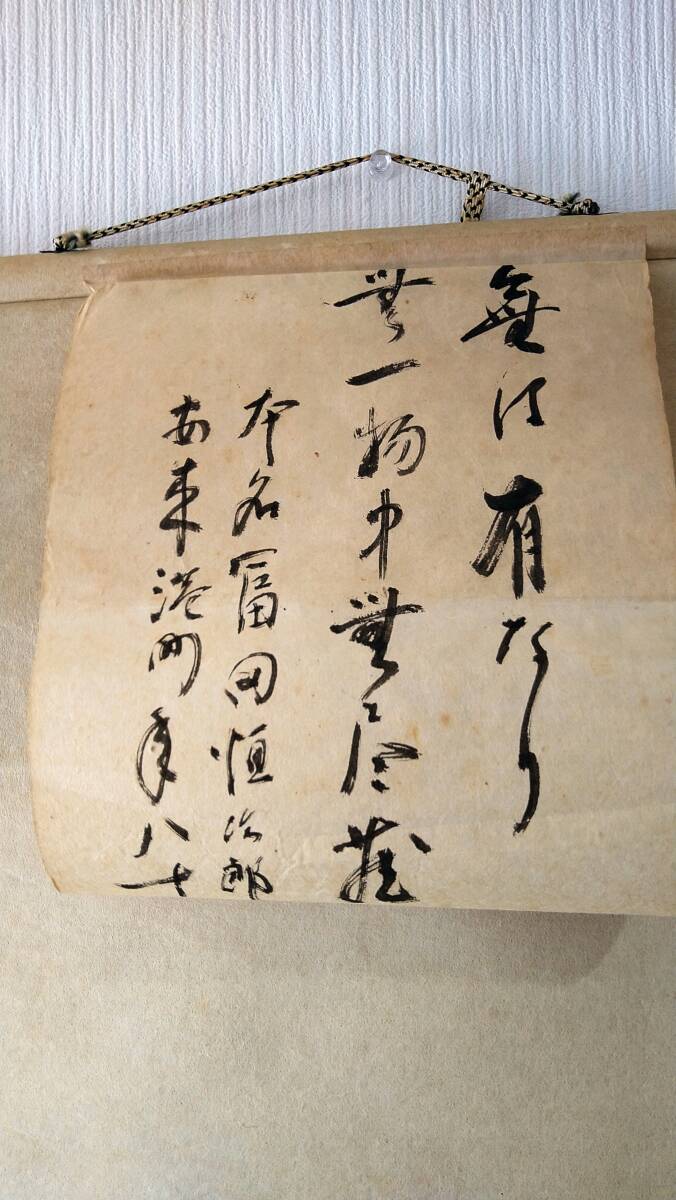 無は有なり
無一物中無尽蔵
本名冨田恒次郎
安来港町年八十